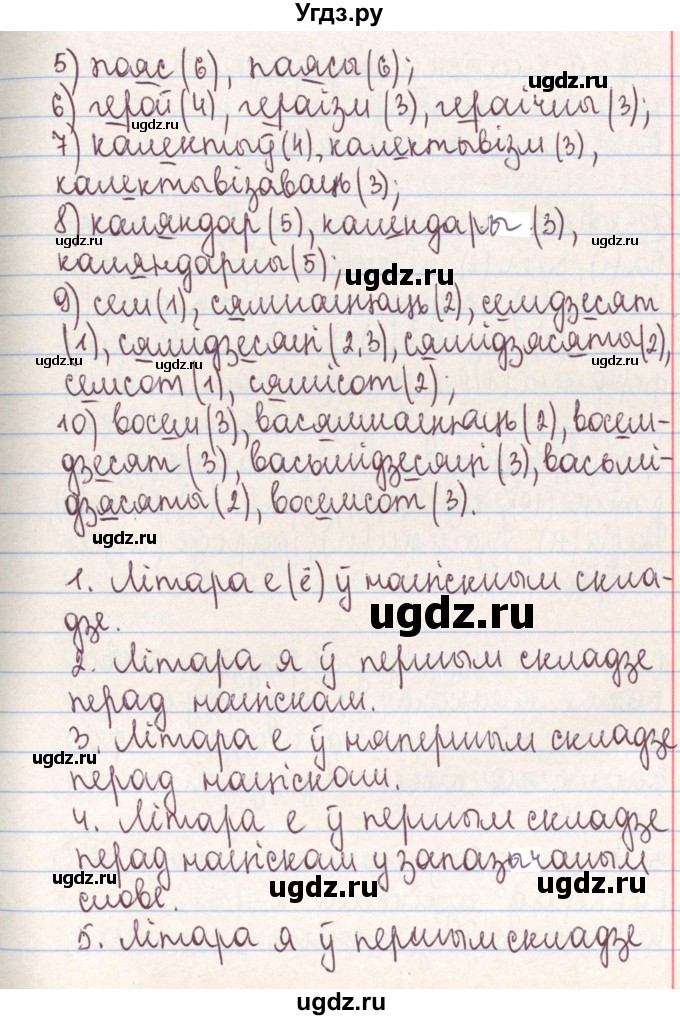 Угдз.ру
5) пояс (6), паясы (6);
6) герой (4), гераізм (3), гераічны (3);
7) калектыў (4), калектывізм (3),
калектывізаваць (3);
8) каляндар (5), календары (3),
каляндарны (5);
9) сем (1), сямнаццаць (2), семдзесят
(1), сямідзесяці (2,3), сямідзясаты (2),
семсот (1), сямісот (2);
10) восем (3), васямнаццаць (2), восем-
дзесят (3), васьмідзесяці (3), васьмі-
дзясаты (2), восемсот (3).
1. Літара е (ё) ў націскным скла-
дзе.
2. Літара я ў першым складзе
перад націскам.
3. Літара е ў няпершым складзе
перад націскам.
4. Літара е ў першым складзе
перад націскам у запазычаным
слове.
5. Літара я ў першым складзе
ugdz.ru